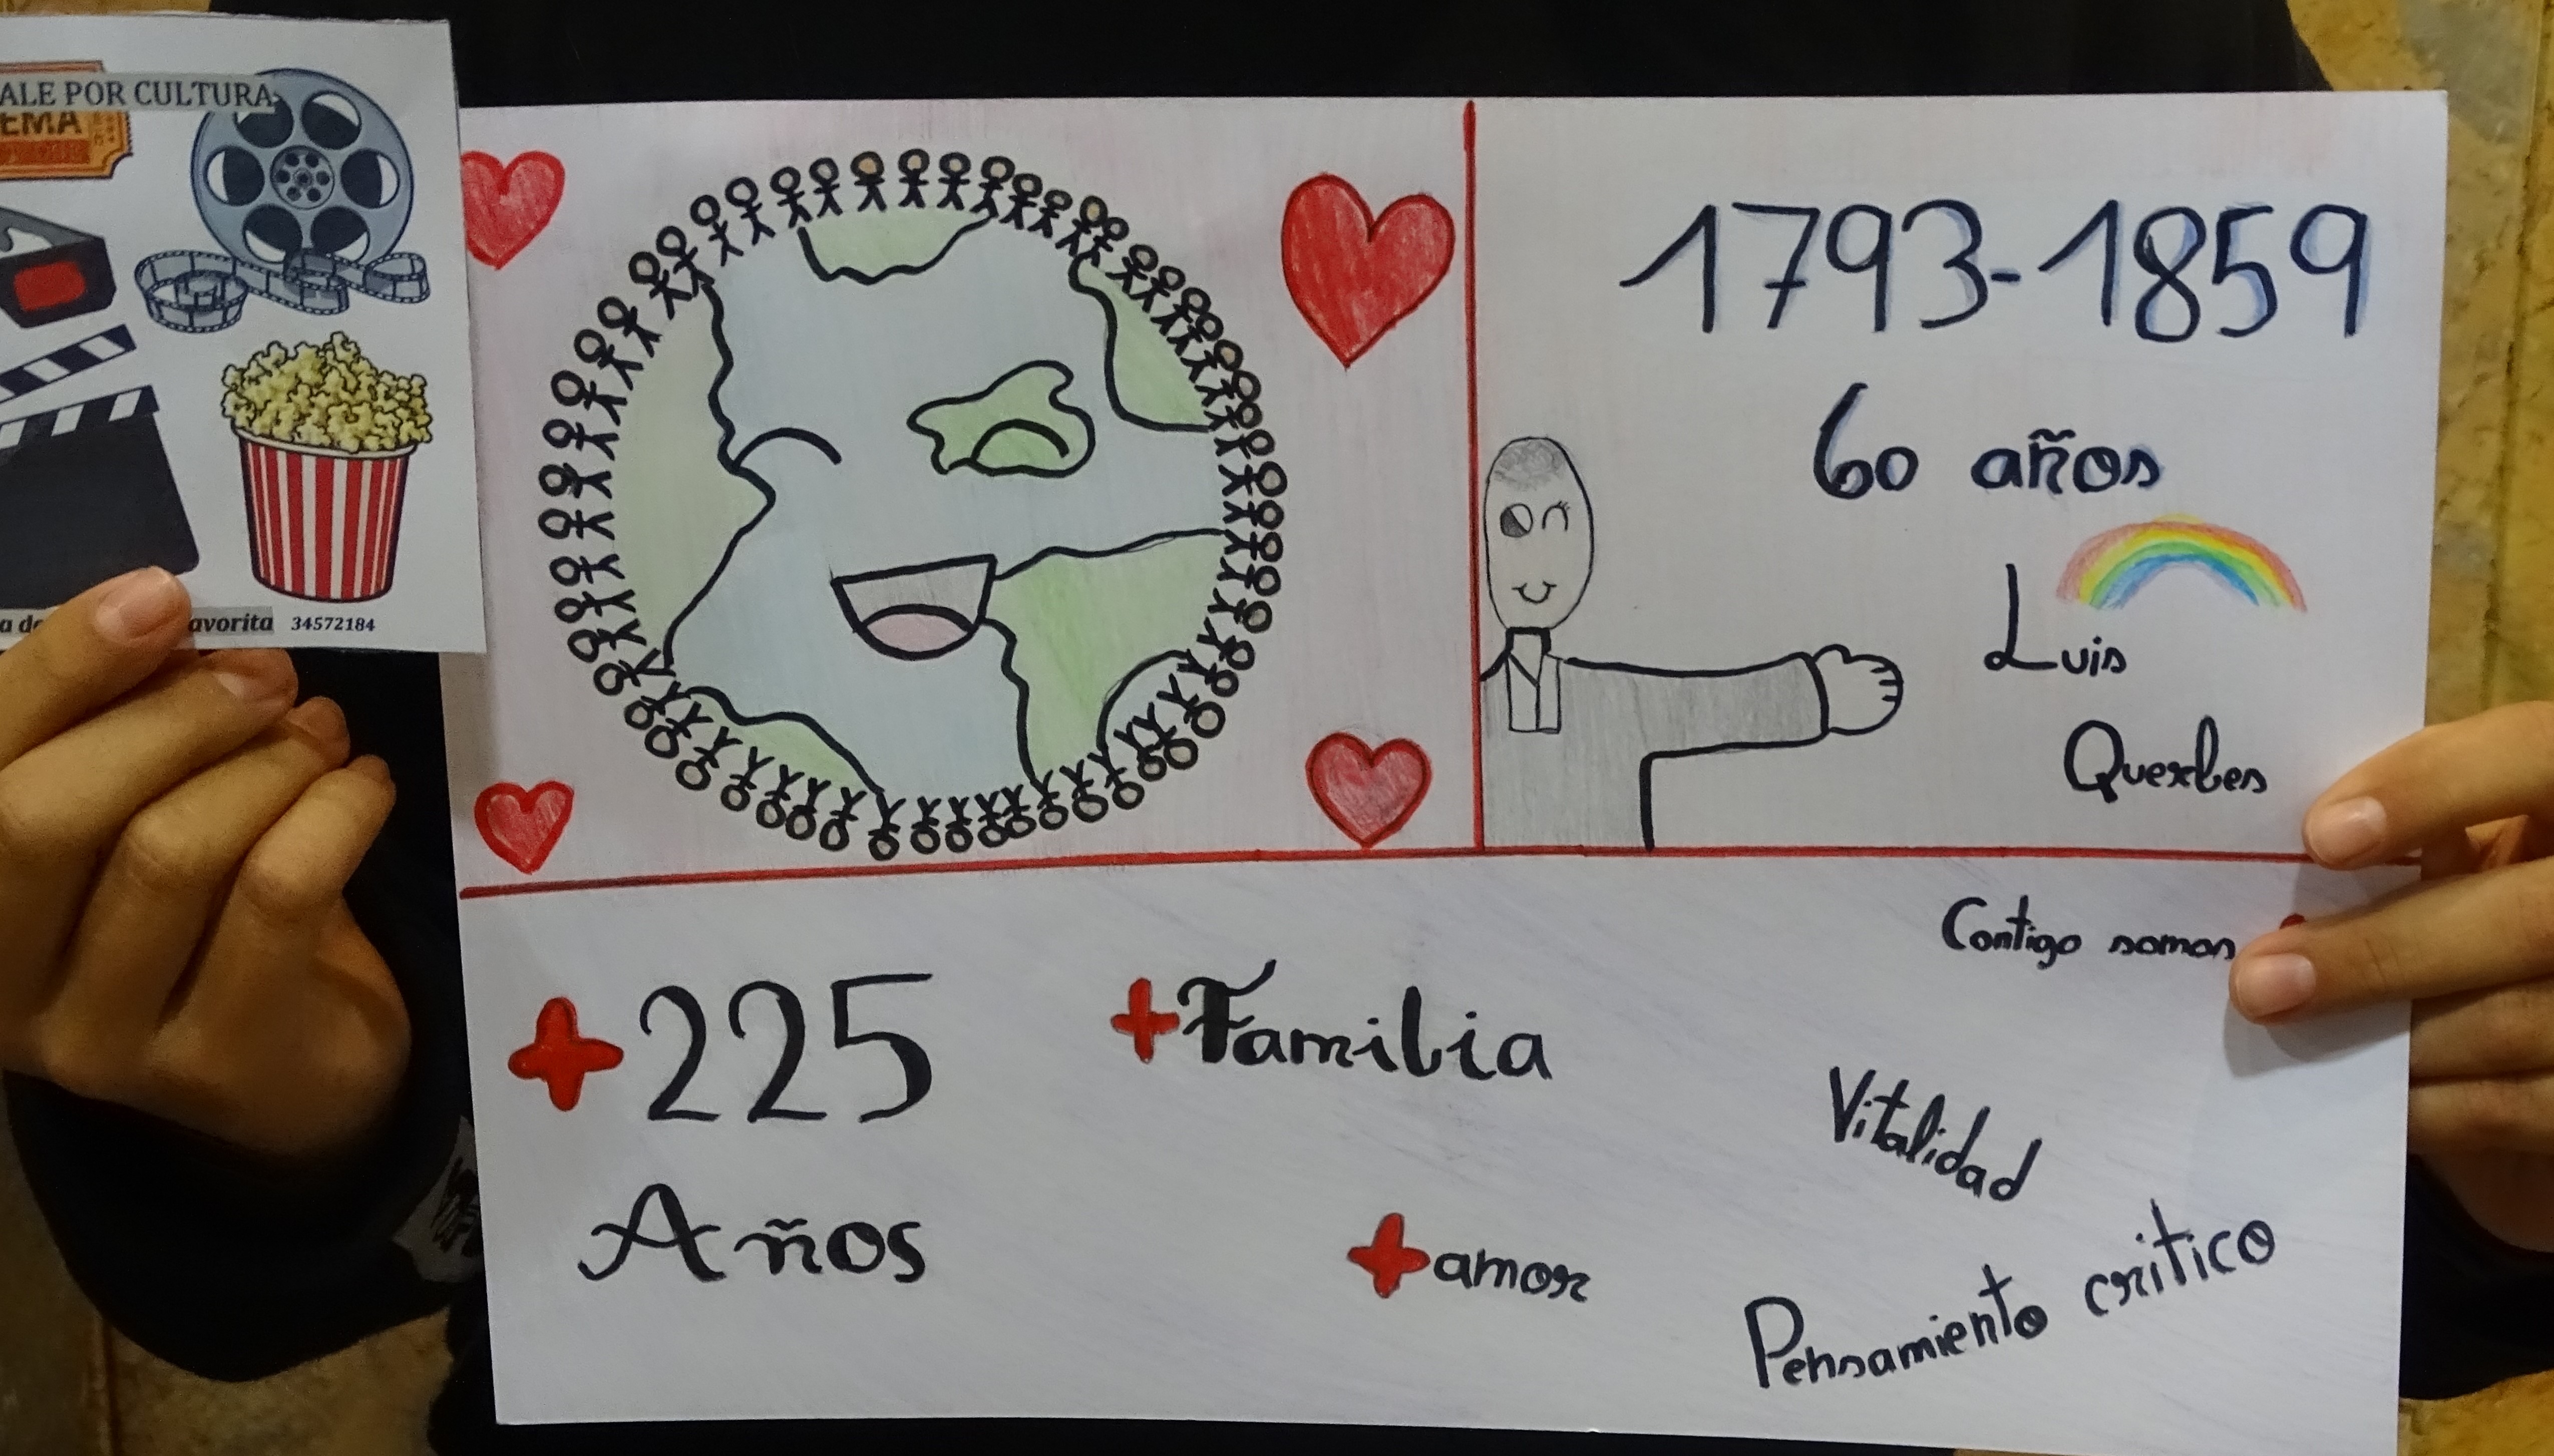 ALE POR CULTURA
EMA
avorita 34572184
1793-1859
60 años
Luis
Querbes
Contigo somos
+225
Años
+Familia
+amor
Vitalidad
Pensamiento critico